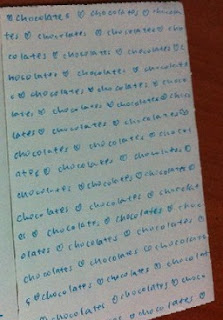 ♡ chocolates ♡ chocolates ♡ chocola
tes ♡ chocolates ♡ chocolates ♡ cho
colates ♡ chocolates ♡ chocolates ♡ c
hocolates ♡ chocolates ♡ chocolate
s ♡ chocolates ♡ chocolates ♡ choco
lates ♡ chocolates ♡ chocolates ♡ choco
lates ♡ chocolates ♡ chocolates ♡
chocolates ♡ chocolates ♡ chocol
ates ♡ chocolates ♡ chocolates ♡
chocolates ♡ chocolates ♡ chocolates ♡
chocolates ♡ chocolates ♡ chocolat
es ♡ chocolates ♡ chocolates ♡ choc
olates ♡ chocolates ♡ chocolates ♡
chocolates ♡ chocolates ♡ chocolate
s ♡ chocolates ♡ chocolates ♡ chocolat
♡ chocolates ♡ chocolates ♡ choco
♡ chocolates ♡ chocolates ♡